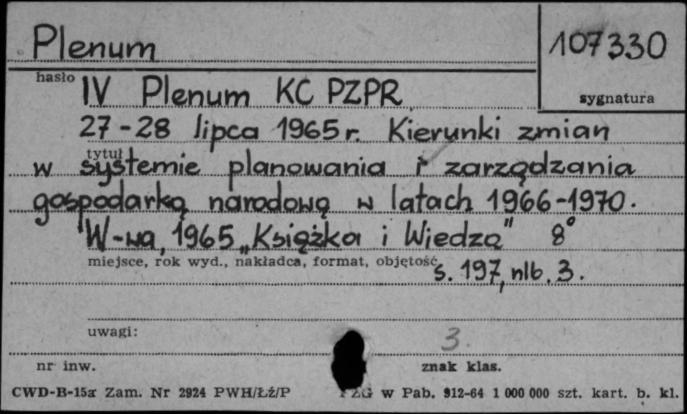 Plenum
107330
hasło
sygnatura
IV Plenum KC PZPR
27-28 lipca 1965 r. Kierunki zmian
tytuł
w systemie planowania i zarządzania
gospodarką narodową w latach 1966-1970.
W-wa, 1965 „Książka i Wiedza" 8°
miejsce, rok wyd., nakładca, format, objętość
s. 197, nlb. 3.
uwagi:
3.
nr inw.
znak klas.
CWD-B-15a Zam. Nr 2924 PWH/Łź/P
PZG w Pab. 912-64 1 000 000 szt. kart. b. kl.